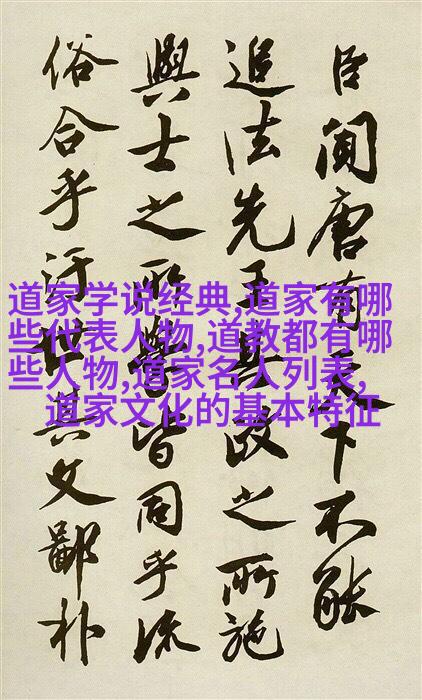 臣聞唐有天下不能
追法先王其政之所施
與士之所學皆同乎流
俗合乎汙世其文鄙朴
道家学说经典,道家有哪
些代表人物,道教都有哪
些人物,道家名人列表,
道家文化的基本特征